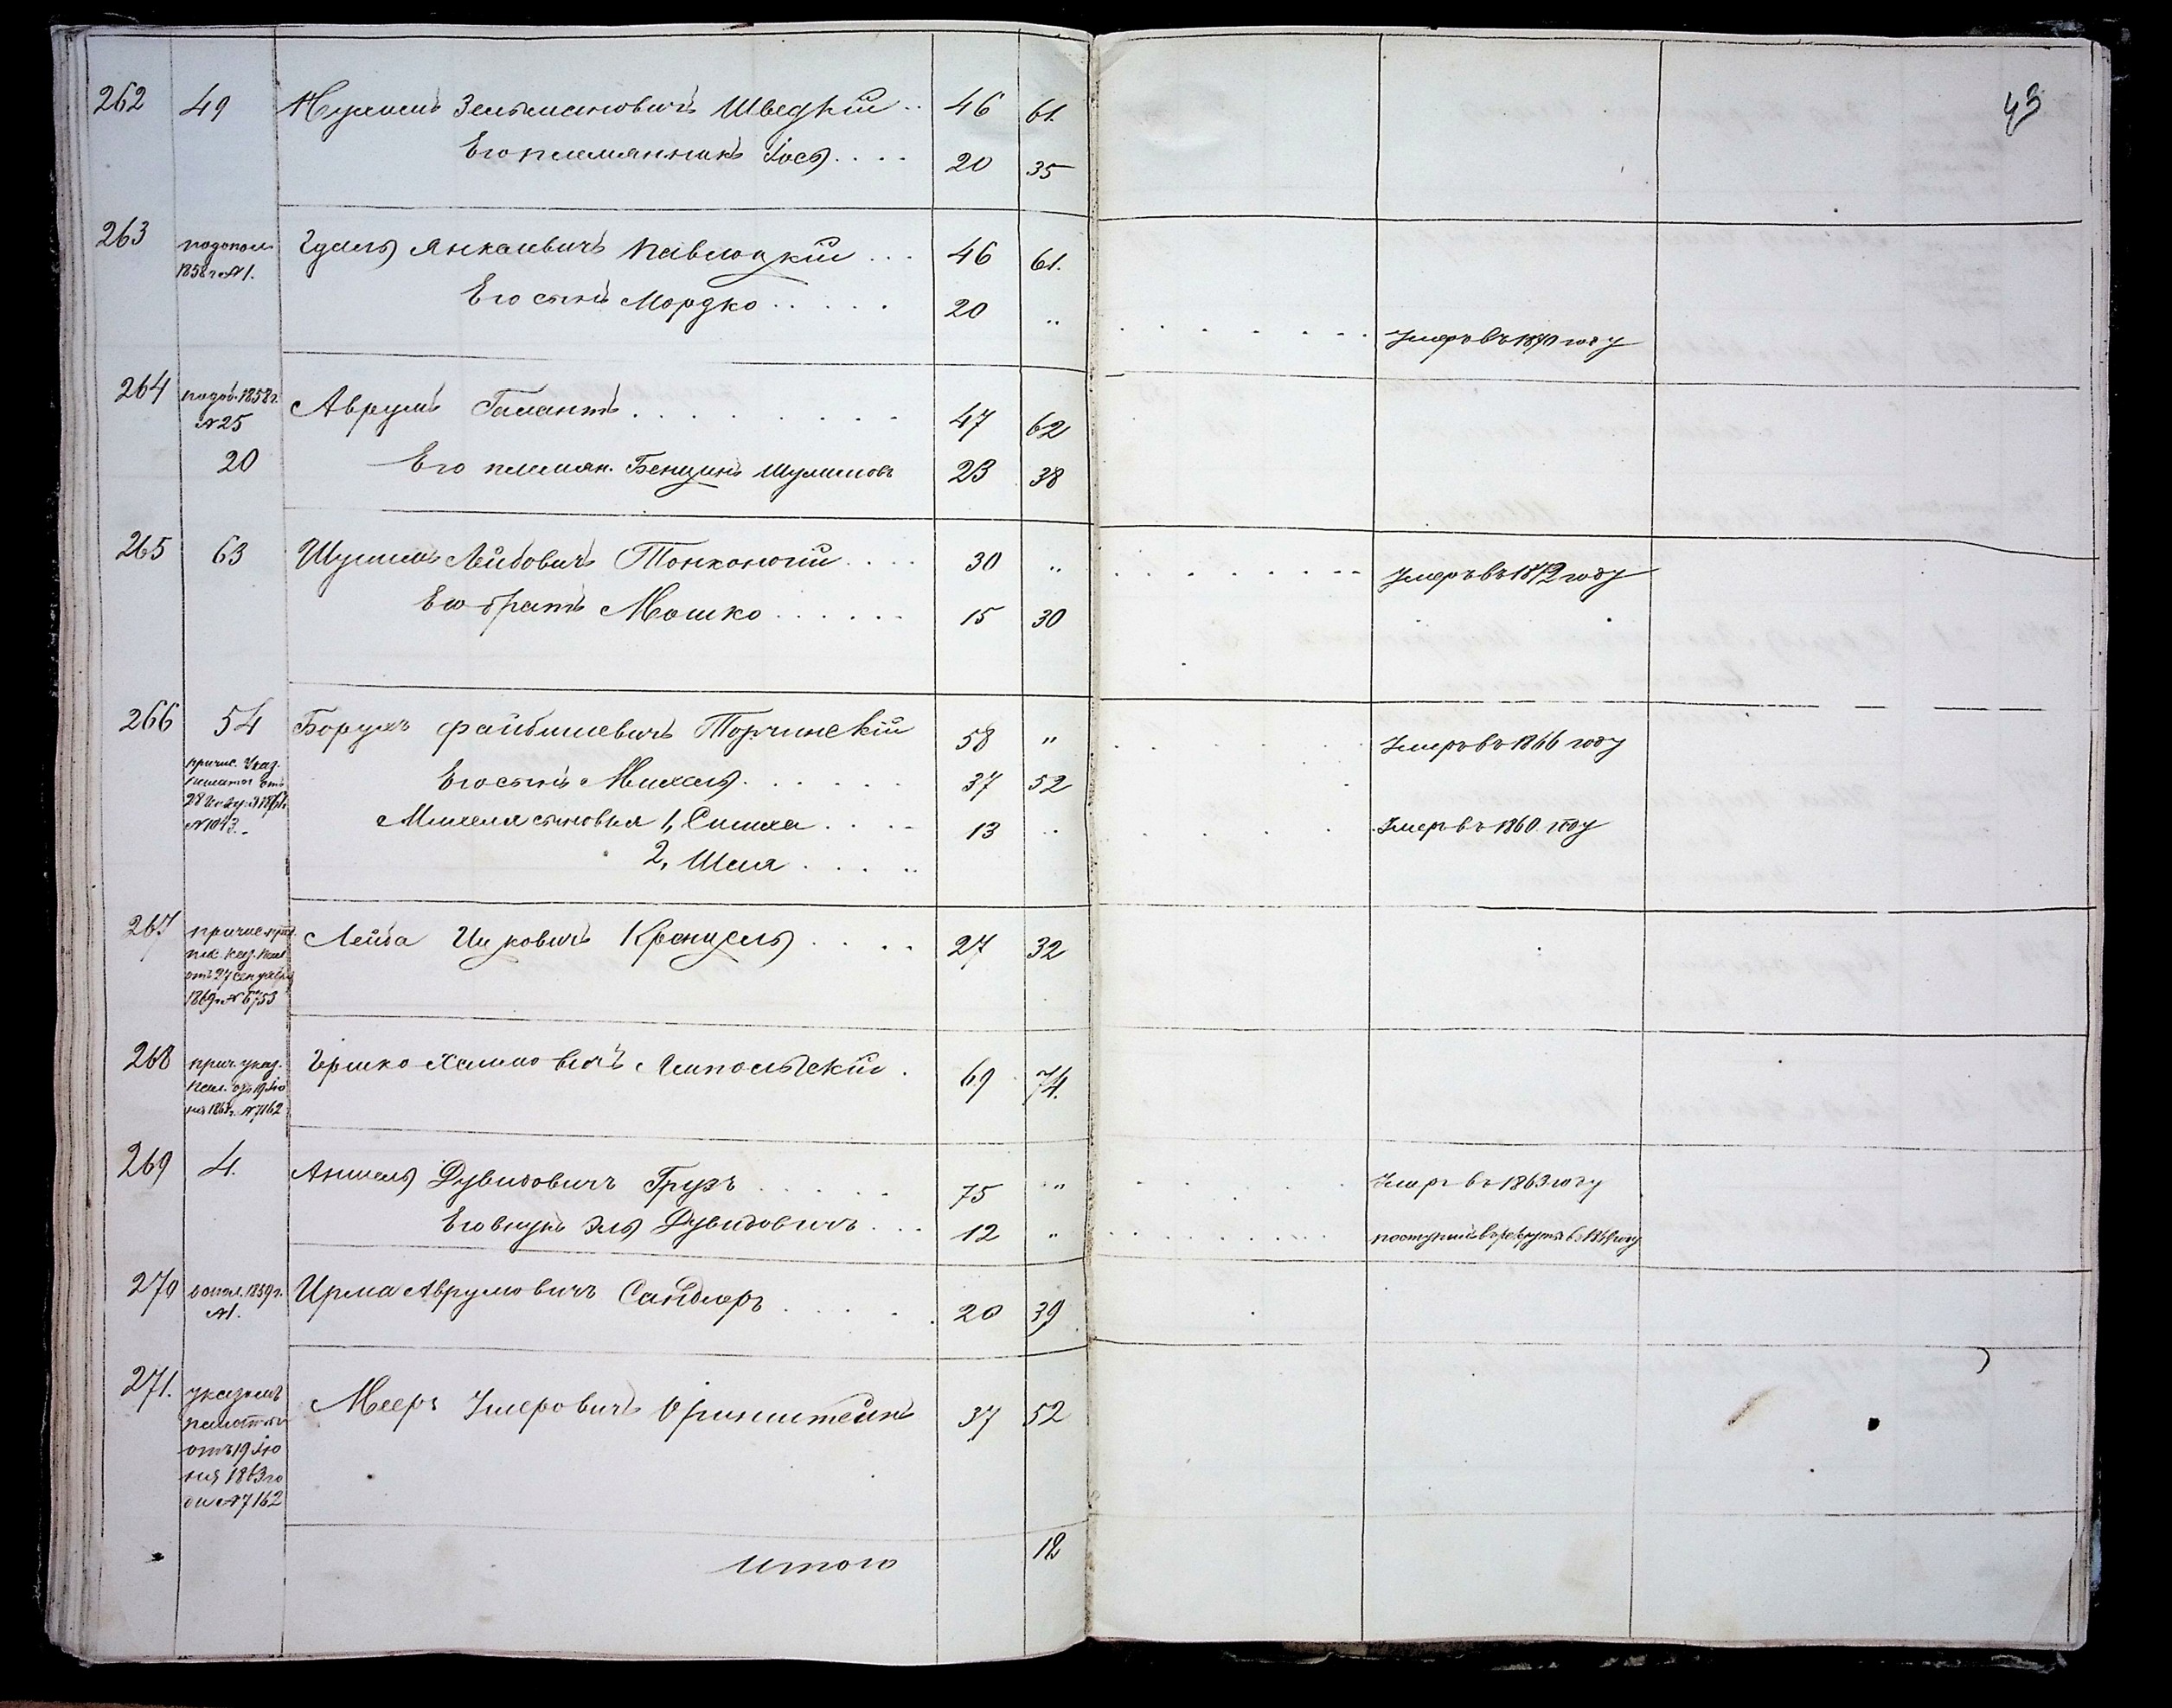 43
262 49 Нухимъ Зельмановичъ Шведкій .. 46 61.
Его племянникъ Іось . . . . 20 35
263 по допол. 1858 г. №1. Гдаль Янкелевичъ Павлоцкій . . . 46 61.
Его сынъ Мордко . . . . . 20 .. Умеръ въ 1870 году
264 по доп. 1858 г. №25 Аврумъ Галантъ . . . . . . . . 47 62
20 Его племян. Бенцинъ Шулимовъ 23 38
265 63 Шулимъ Лейбовичъ Тонконогій . . . . 30 .. Умеръ въ 1872 году
Его братъ Мошко . . . . . . 15 30
266 54 Борухъ Файбишевичъ Торчинскій 58 " Умеръ въ 1866 году
причис. Указ.
Его сынъ Михель . . . . . . 37 52
№1043.
Михеля сыновья 1, Симха . . . . 13 .. Умеръ въ 1860 году
2, Шая . . . . ..
267 Лейба Ицковичъ Кренцель . . . . 27 32
каз. пал.
отъ 27 сентября
1869 г. №6753
268 прич. указ. Гершко Хаимовичъ Ямпольскій . 69 74.
пал. отъ 19 Іюня 1863 г. №7162
269 4. Аншель Дувидовичъ Грузъ . . . . . 75 " Умеръ въ 1863 году
Его внукъ Эль Дувидовичъ . . . 12 " поступилъ въ рекруты въ году
270 допол. 1859 г. №1. Ирма Аврумовичъ Сандлеръ . . . . . 20 39
271. указомъ Мееръ Умеровичъ Оринштейнъ 37 52
палаты
отъ 19 Іюня 1863 года №7162
Итого 12